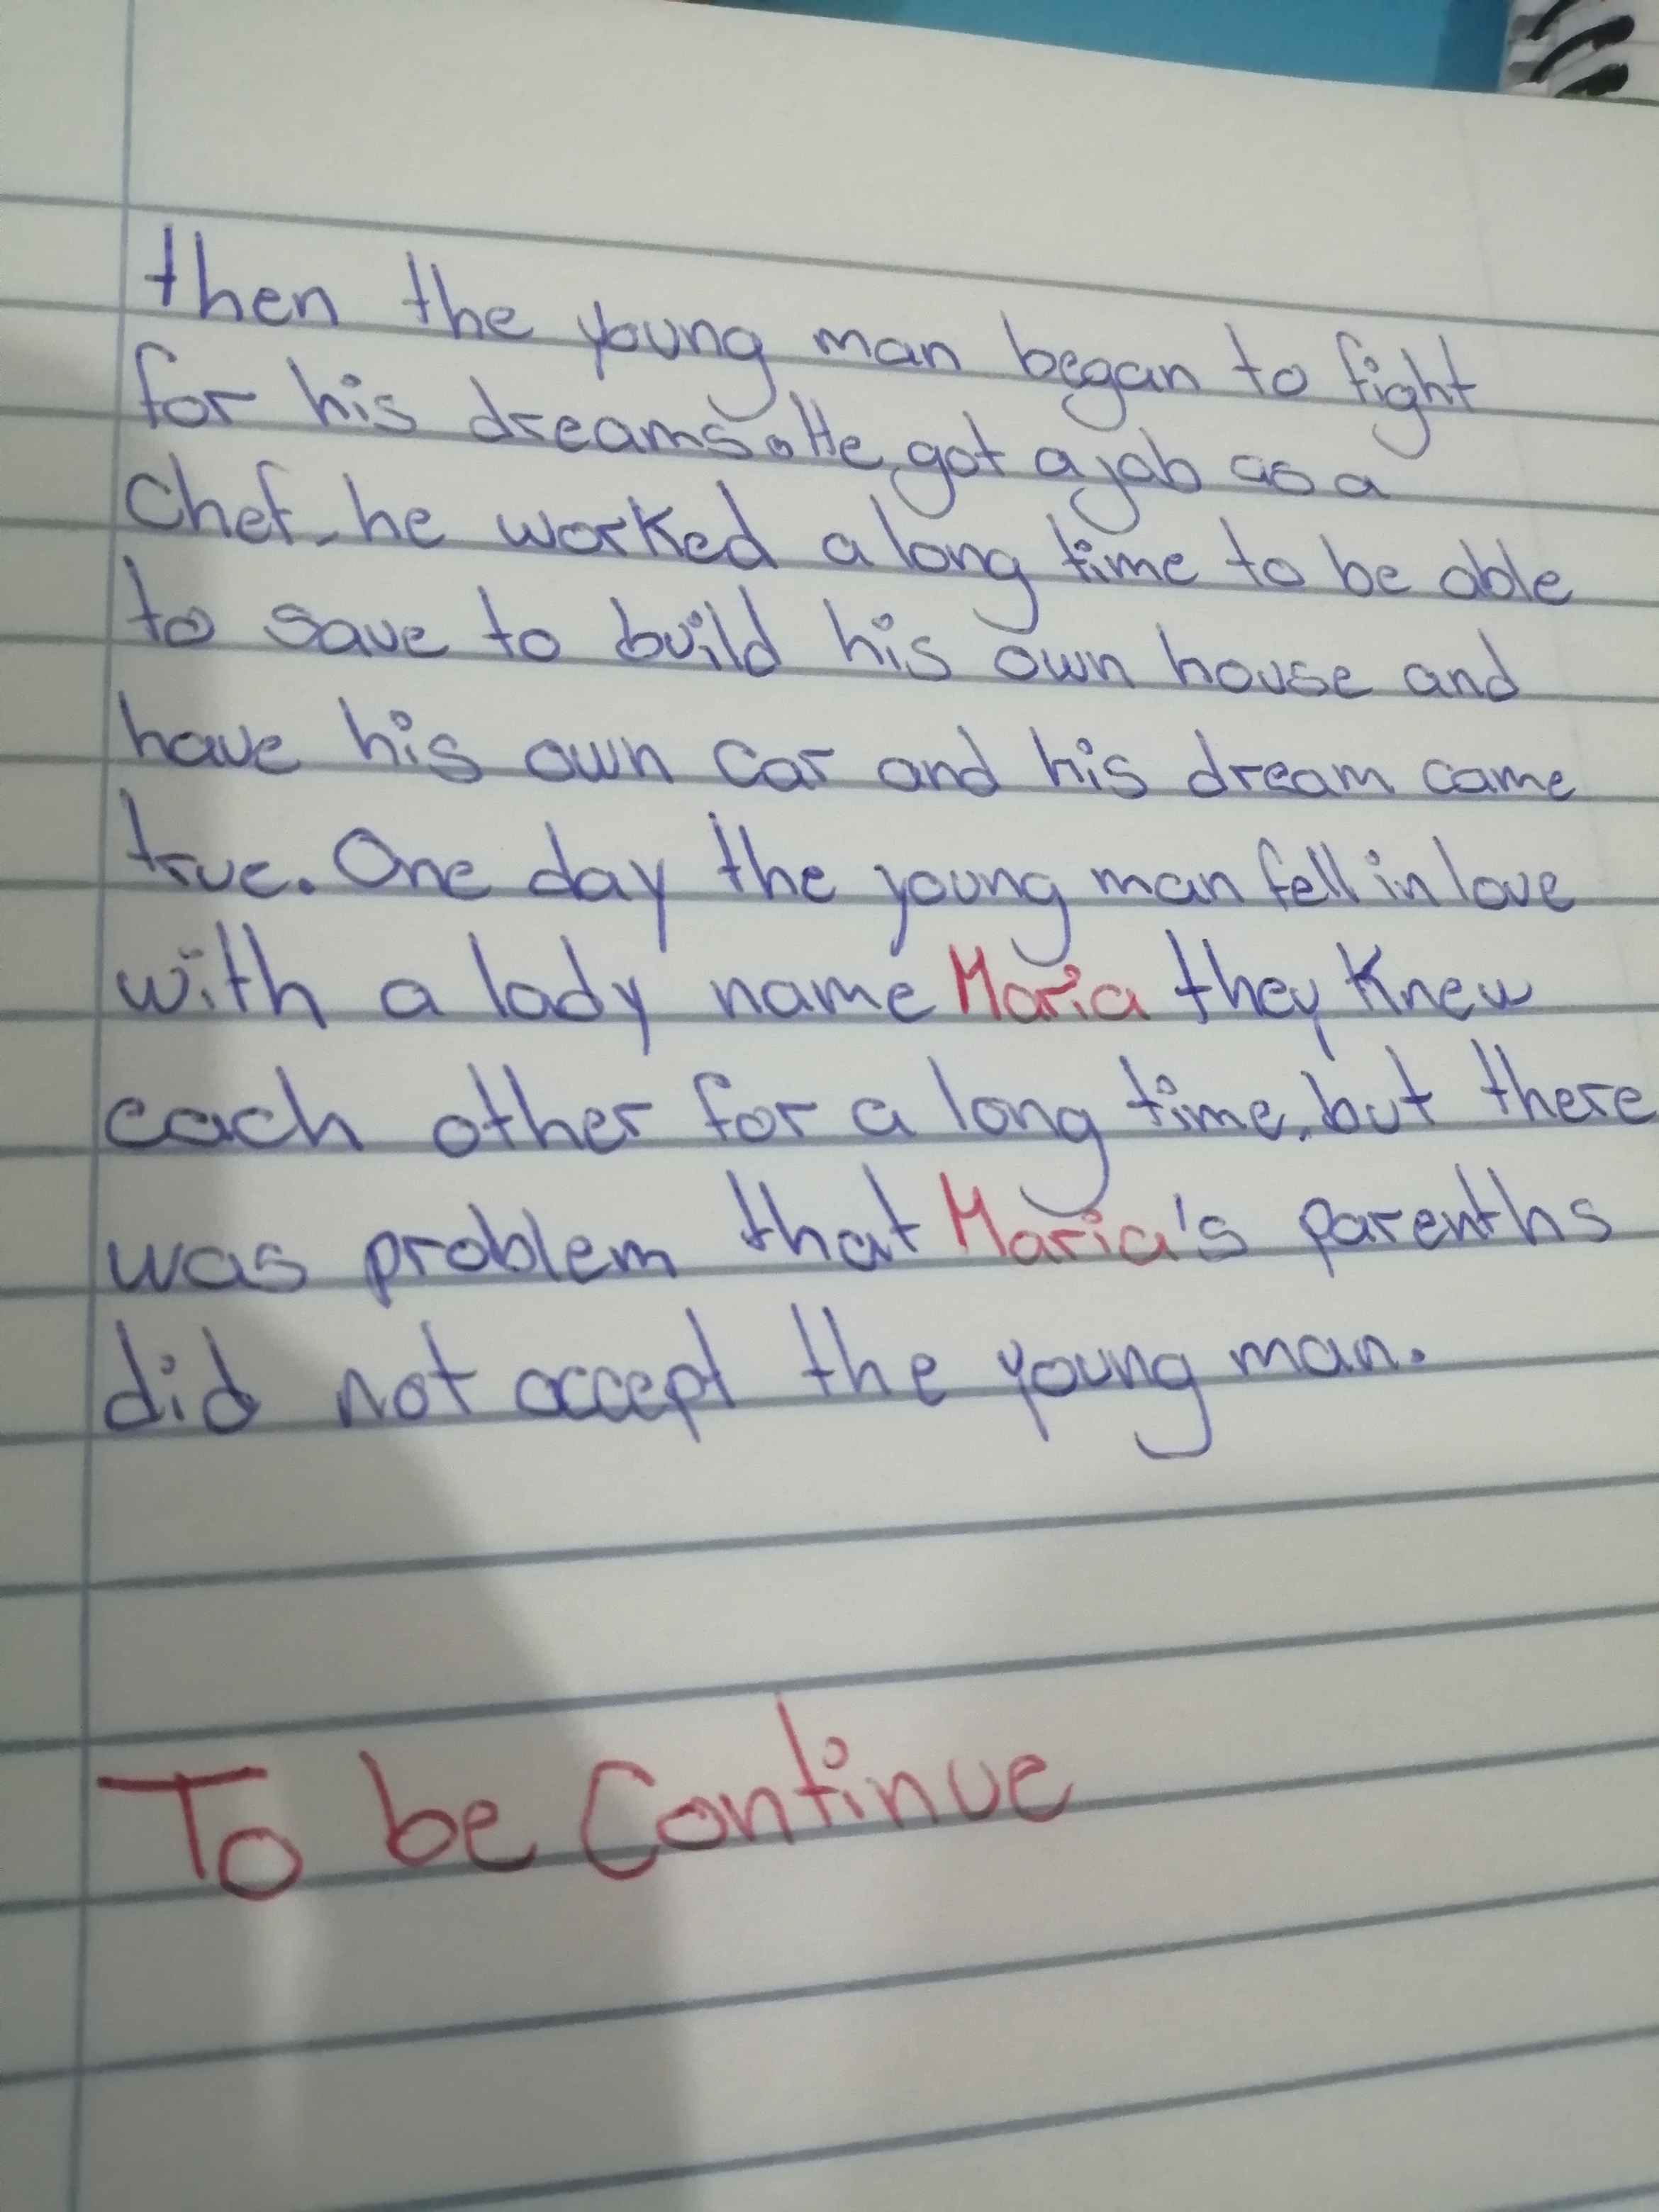 then the young man began to fight
for his dreams. He got a job as a
Chef, he worked a long time to be able
to save to build his own house and
have his own car and his dream came
true. One day the young man fell in love
with a lady name Maria they knew
each other for a long time, but there
was problem that Maria's parenths
did not accept the young man.
To be Continue